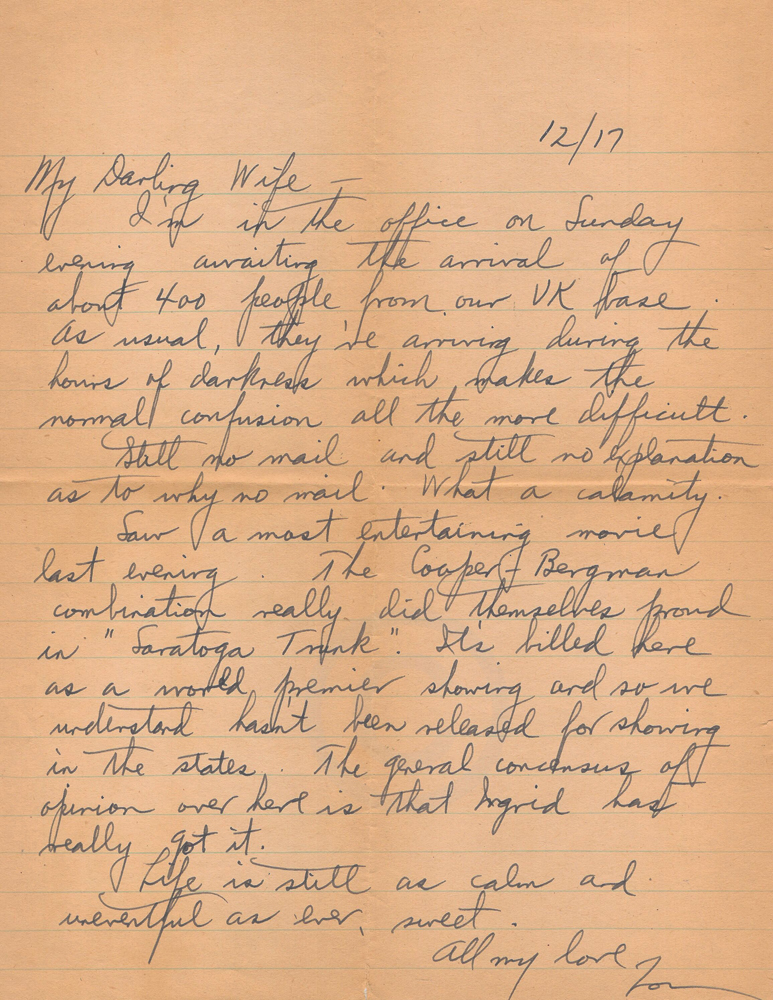 12/17
My Darling Wife —
I'm in the office on Sunday
evening awaiting the arrival of
about 400 people from our UK base.
As usual, they're arriving during the
hours of darkness which makes the
normal confusion all the more difficult.
Still no mail and still no explanation
as to why no mail. What a calamity.
Saw a most entertaining movie
last evening. The Cooper-Bergman
combination really did themselves proud
in "Saratoga Trunk". It's billed here
as a world premier showing and so we
understand hasn't been released for showing
in the states. The general concensus of
opinion over here is that Ingrid has
really got it.
Life is still as calm and
uneventful as ever, sweet.
All my love